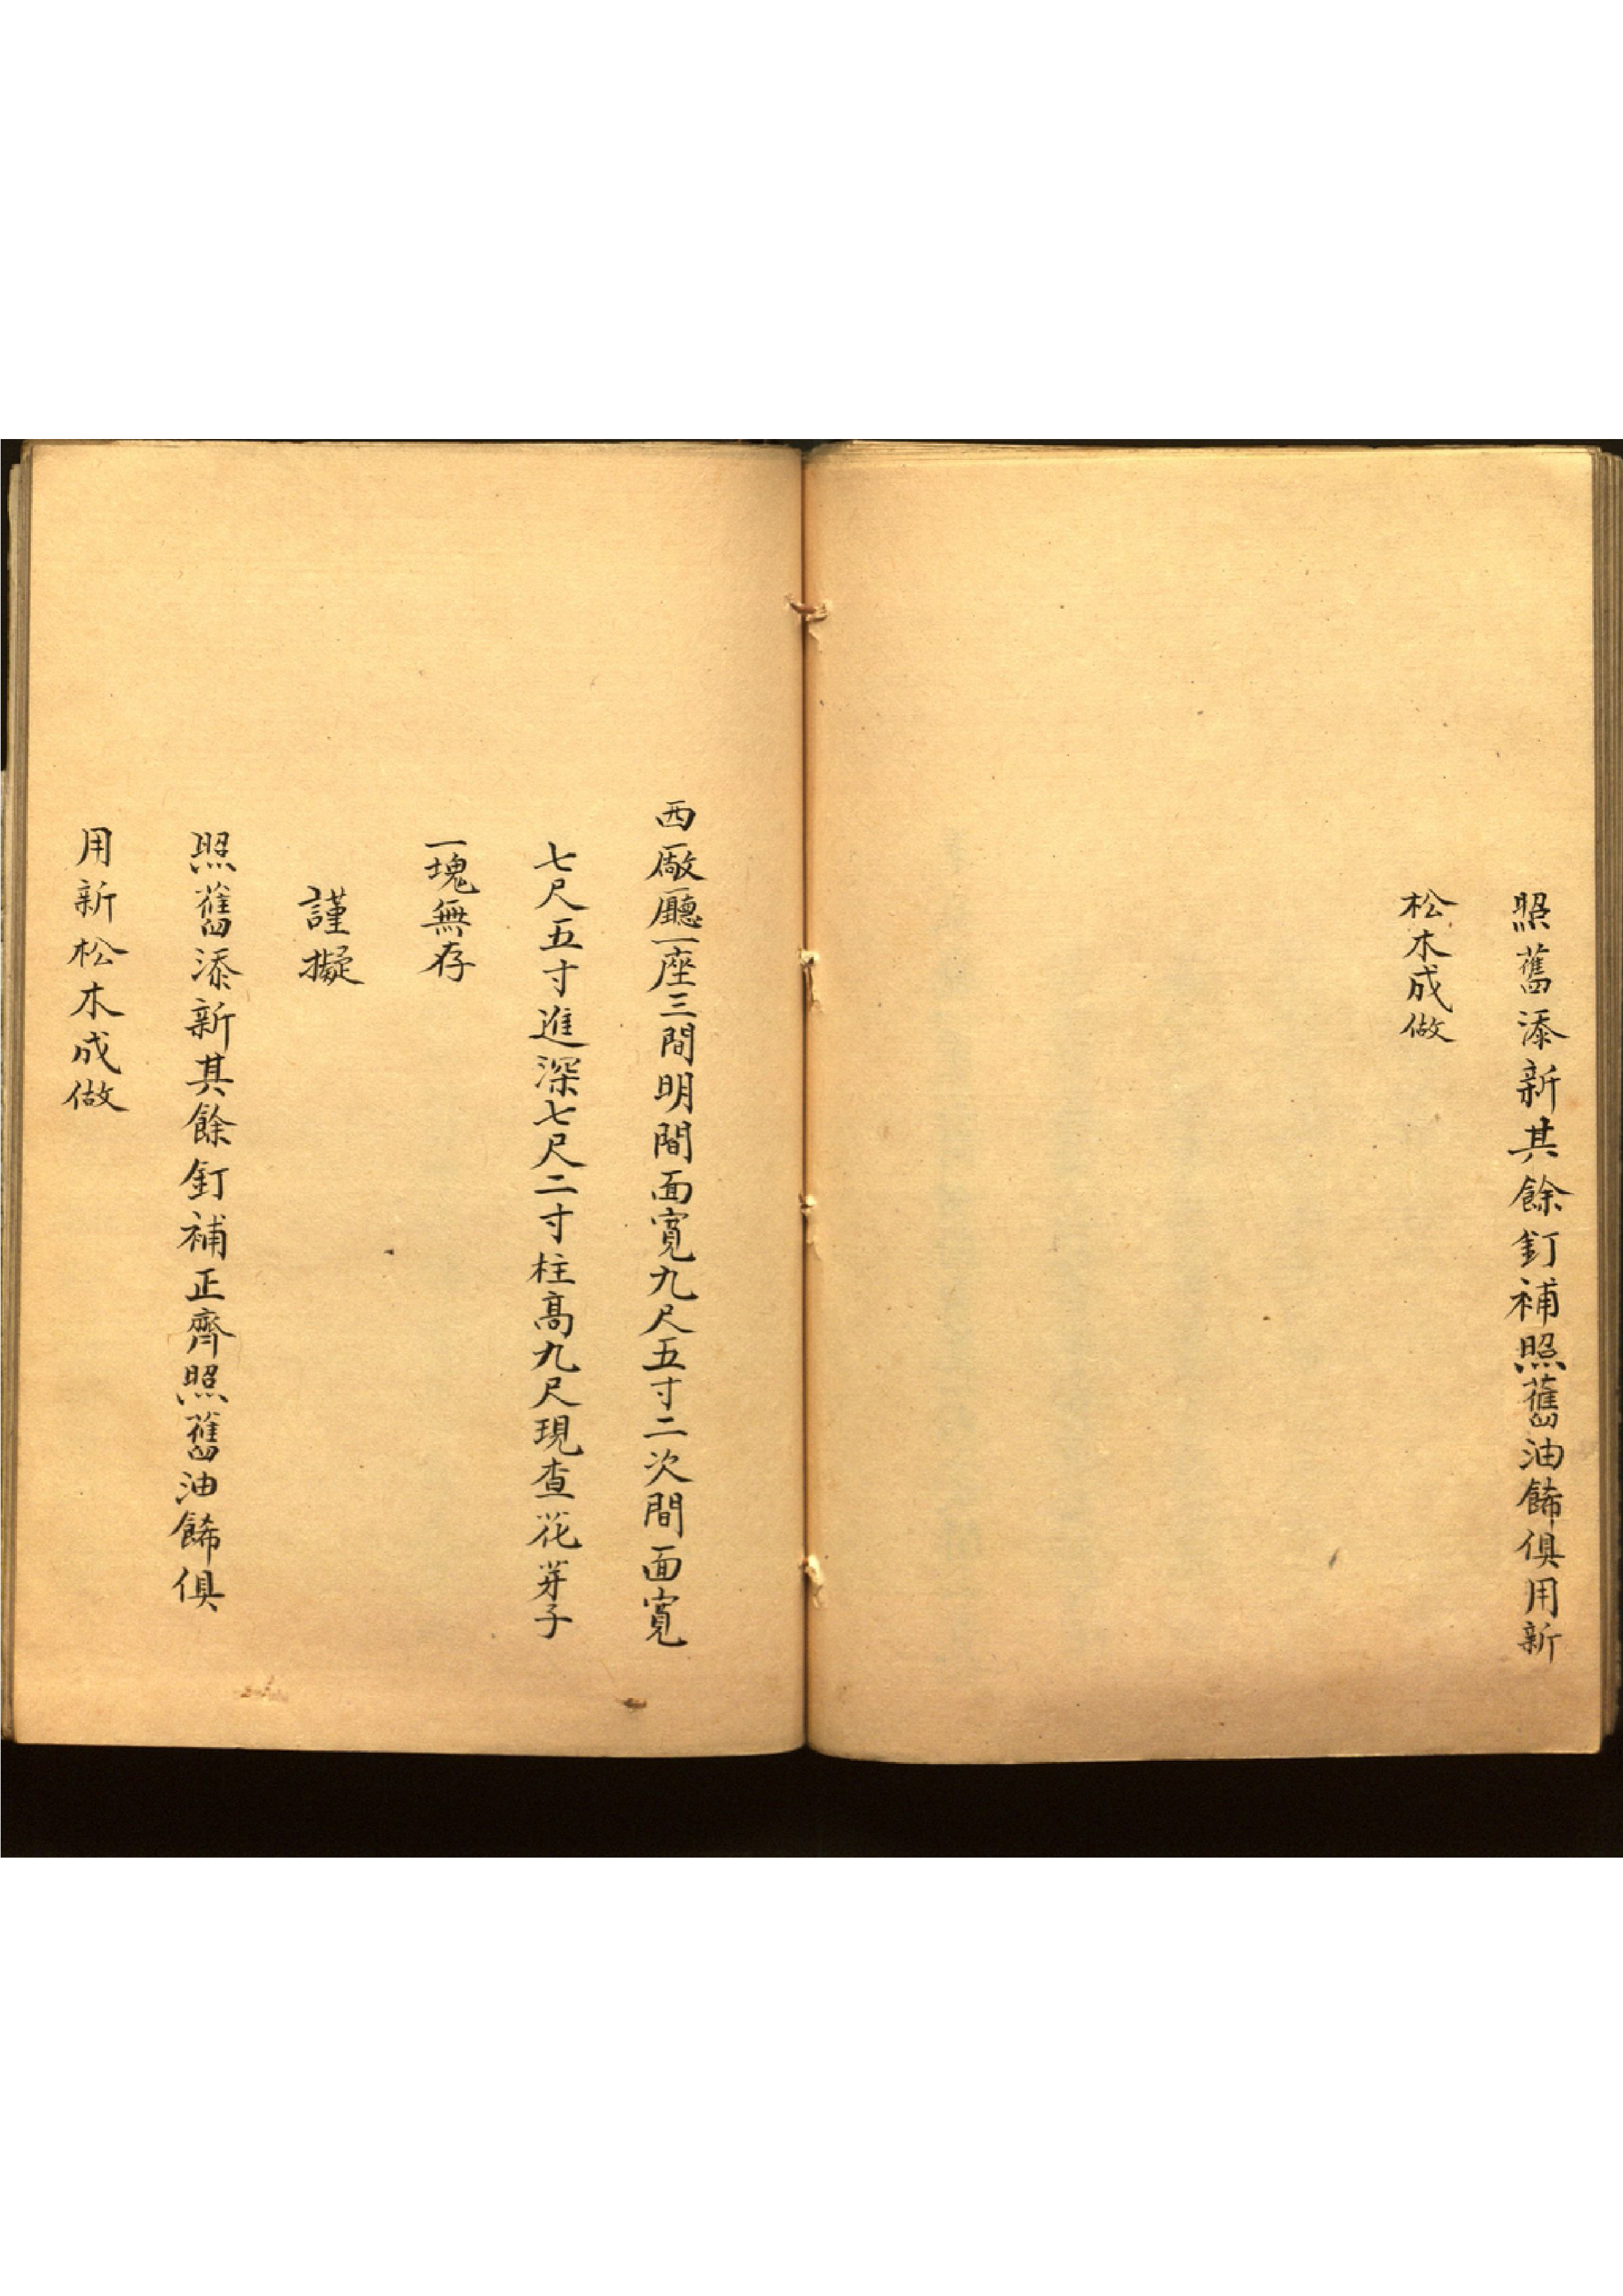 照舊添新其餘釘補照舊油餙俱用新
松木成做
西廠廳一座三間明間面寬九尺五寸二次間面寬
七尺五寸進深七尺二寸柱高九尺現查花芽子
一塊無存
謹擬
照舊添新其餘釘補正齊照舊油餙俱
用新松木成做